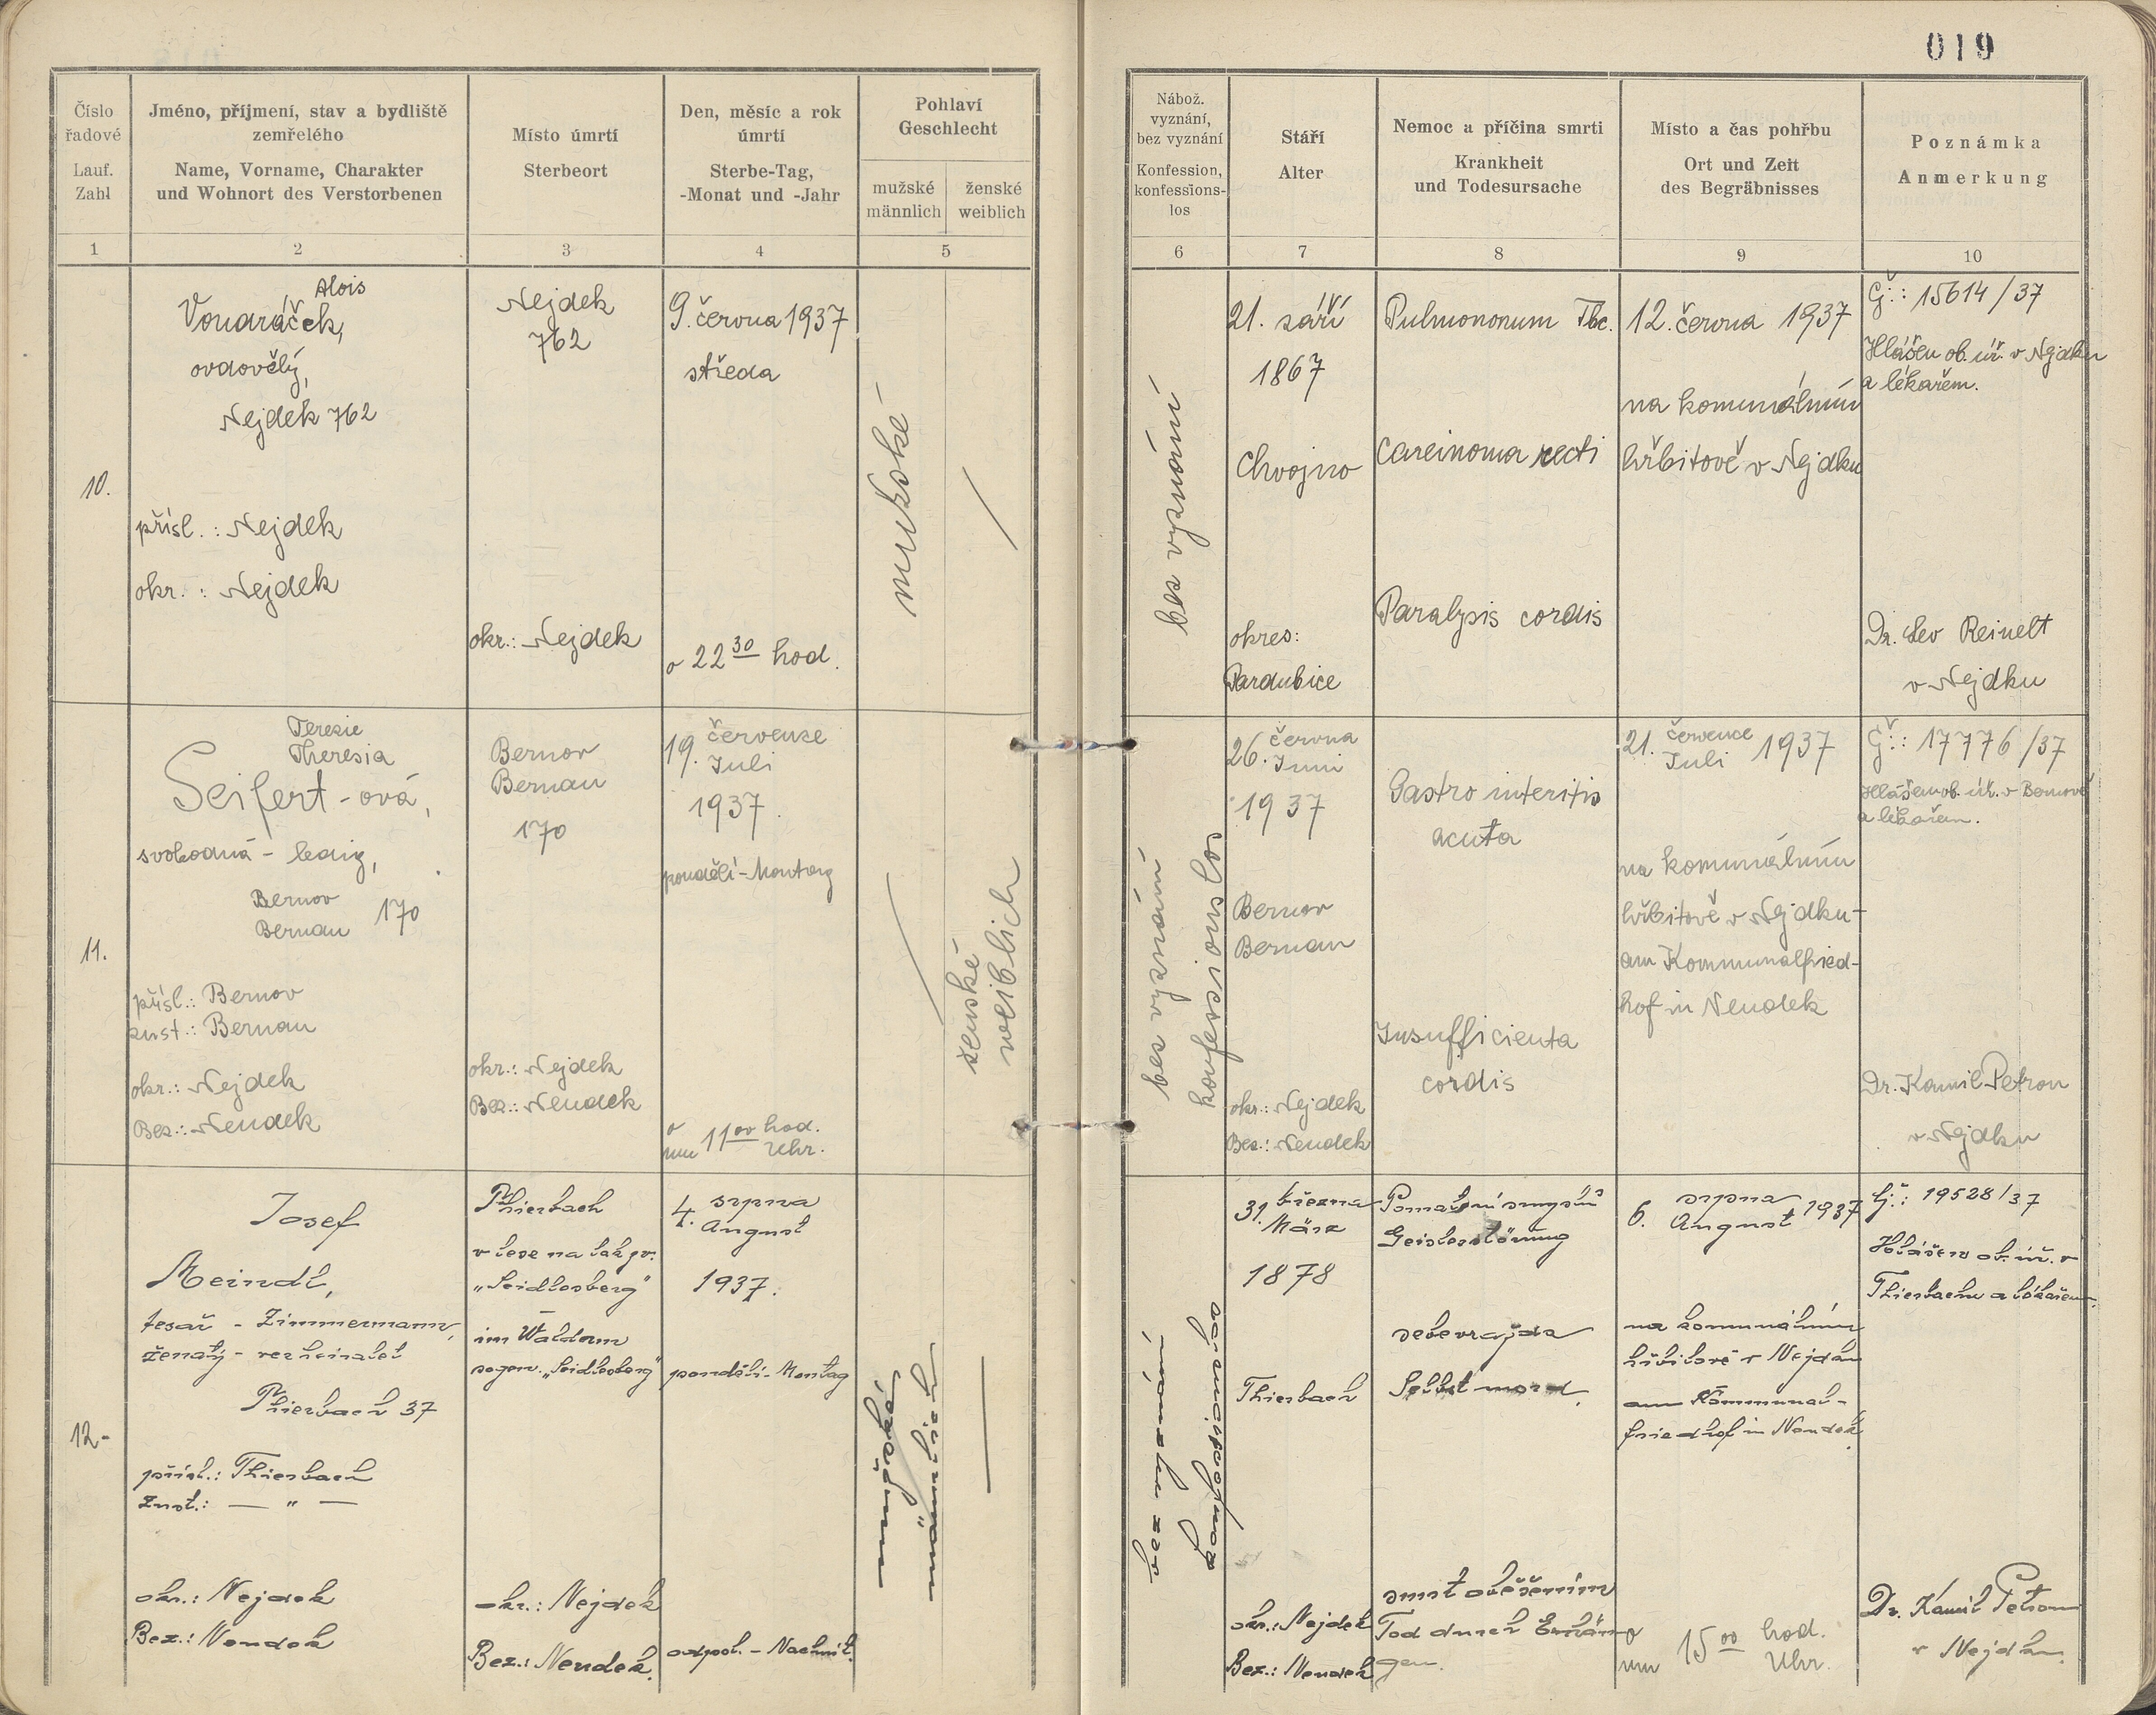 019
Číslo
řadové
Lauf.
Zahl
Jméno, příjmení, stav a bydliště
zemřelého
Name, Vorname, Charakter
und Wohnort des Verstorbenen
Místo úmrtí
Sterbeort
Den, měsíc a rok
úmrtí
Sterbe-Tag,
-Monat und -Jahr
Pohlaví
Geschlecht
mužské
männlich
ženské
weiblich
Nábož.
vyznání,
bez vyznání
Konfession,
konfessions-
los
Stáří
Alter
Nemoc a příčina smrti
Krankheit
und Todesursache
Místo a čas pohřbu
Ort und Zeit
des Begräbnisses
Poznámka
Anmerkung
1 2 3 4 5 6 7 8 9 10
10.
Alois
Vondráček,
ovdovělý,
Nejdek 762
přísl.: Nejdek
okr.: Nejdek
Nejdek
762
okr.: Nejdek
9. června 1937
středa
o 22 30 hod.
mužské
bez vyznání
21. září
1867
Chvojno
okres:
Pardubice
Pulmononum Tbc.
Carcinoma recti
Paralysis cordis
12. června 1937
na komunálním
hřbitově v Nejdku
Čj.: 15614/37
Hlášen ob. úř. v Nejdku
a lékařem.
Dr. Lev Reinelt
v Nejdku
11.
Teresie
Theresia
Seifert-ová,
svobodná - ledig,
Bernov
Bernau 170
přísl.: Bernov
zust.: Bernau
okr.: Nejdek
Bez.: Neudek
Bernov
Bernau
170
okr.: Nejdek
Bez.: Neudek
19. července
Juli
1937.
pondělí - Montag
o
um 11 00 hod.
Uhr.
ženské
weiblich
bez vyznání
konfessionslos
26. června
Juni
1937
Bernov
Bernau
okr.: Nejdek
Bez.: Neudek
Gastro interitis
acuta
Insufficienta
cordis
21. července
Juli 1937
na komunálním
hřbitově v Nejdku -
am Kommunalfried-
hof in Neudek
Čj.: 17776/37
Hlášen ob. úř. v Bernově
a lékařem.
Dr. Kamil Petron
v Nejdku
12.
Josef
Meindl,
tesař - Zimmermann,
ženatý - verheiratet
Thierbach 37
přísl.: Thierbach
Zust.: — " —
okr.: Nejdek
Bez.: Neudek
Thierbach
v lese na tak zv.
„Seidlesberg"
im Walde am
sogen. „Seidlesberg"
okr.: Nejdek
Bez.: Neudek.
4. srpna
August
1937.
pondělí - Montag
odpol. - Nachmit.
mužské,
männlich
bez vyznání
konfessionslos
31. března
März
1878
Thierbach
okr.: Nejdek
Bez.: Neudek
Pomatení smyslů
Geistesstörung
sebevražda
Selbstmord.
smrt oběšením
Tod durch Erhän-
gen.
6. srpna
August 1937
na komunálním
hřbitově v Nejdku
am Kommunal-
friedhof in Neudek.
o
um 15 00 hod.
Uhr.
Čj.: 19528/37
Hlášen ob. úř. v
Thierbachu a lékařem.
Dr. Kamil Petron
v Nejdku.